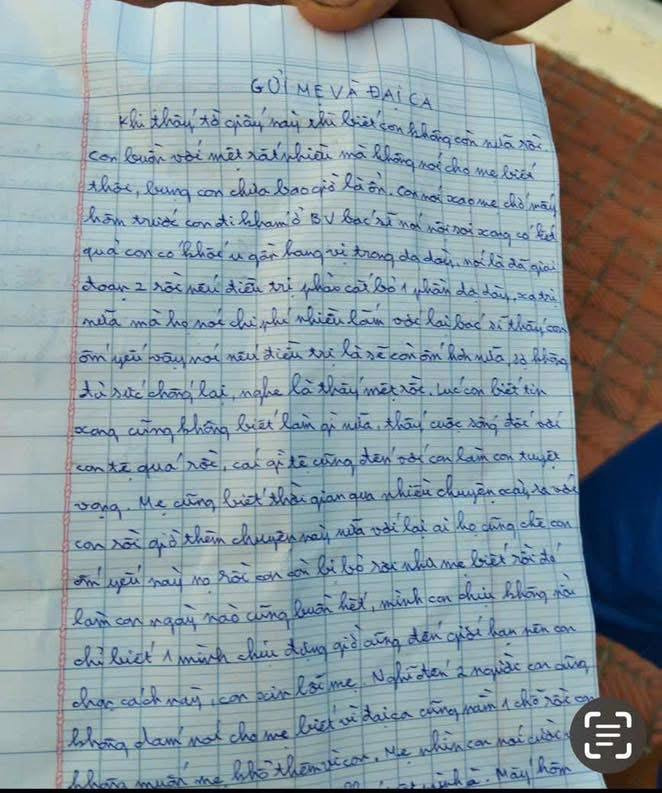 GỞI MẸ VÀ ĐẠI CA
Khi thấy tờ giấy này thì biết con không còn nữa rồi
con buồn với mệt rất nhiều mà không nói cho mẹ biết
thôi, bụng con chưa bao giờ là ổn. Con nói xạo mẹ chờ mấy
hôm trước con đi khám ở BV bác sĩ nói nội soi xong có kết
quả con có khối u gần hang vị trong dạ dày, nói là đã giai
đoạn 2 rồi nếu điều trị phải cắt bỏ 1 phần dạ dày, xạ trị
nữa mà họ nói chi phí nhiều lắm với lại bác sĩ thấy con
ốm yếu vậy nói nếu điều trị là sẽ còn ốm hơn nữa, sợ không
đủ sức chống lại, nghe là thấy mệt rồi. Lúc con biết tin
xong cũng không biết làm gì nữa, thấy cuộc sống đối với
con tệ quá rồi, cái gì tệ cũng đến với con làm con tuyệt
vọng. Mẹ cũng biết thời gian qua nhiều chuyện xảy ra với
con rồi giờ thêm chuyện này nữa với lại ai họ cũng chê con
ốm yếu này nọ rồi con còn bị bỏ rơi nha mẹ biết rồi đó
làm con ngày nào cũng buồn hết, mình con chịu không nổi
chỉ biết 1 mình chịu đựng giờ cũng đến giới hạn nên con
chọn cách này, con xin lỗi mẹ. Nghĩ đến 2 người con cũng
không dám nói cho mẹ biết vì đại ca cũng nằm 1 chỗ rồi con
không muốn mẹ khổ thêm vì con. Mẹ nhìn con nói cười
Mấy hôm